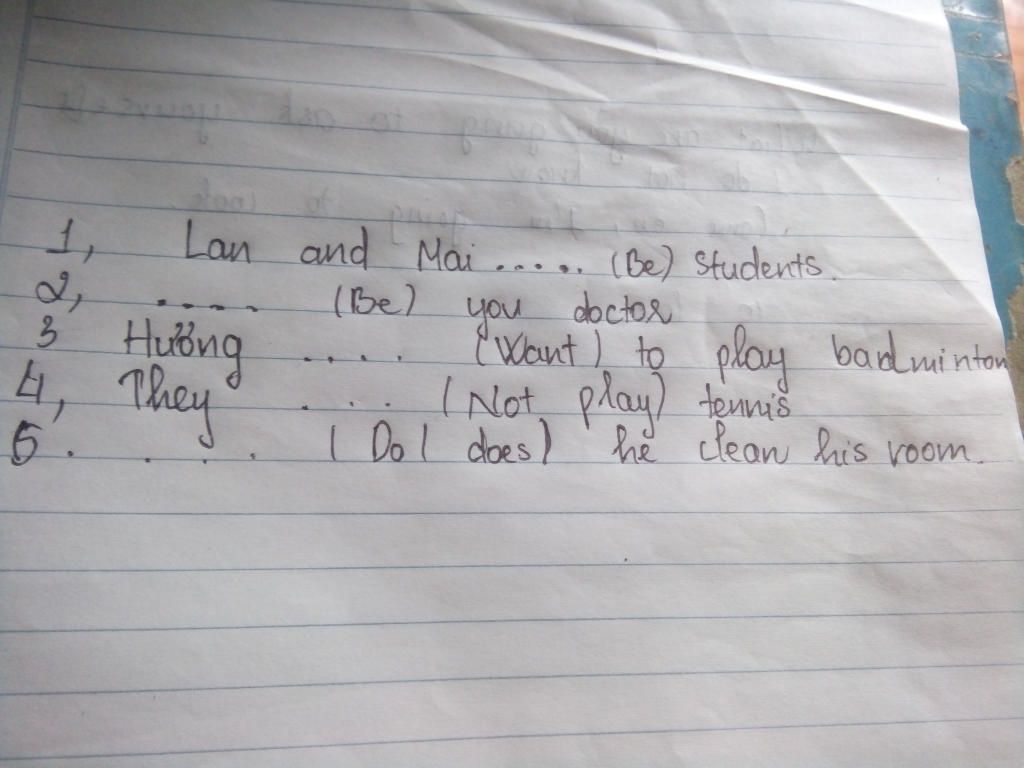 1, Lan and Mai ..... (Be) students.
2, ..... (Be) you doctor
3 Hường .... (Want) to play badminton
4, They .... (Not play) tennis
5. . . . (Do / does) he clean his room.